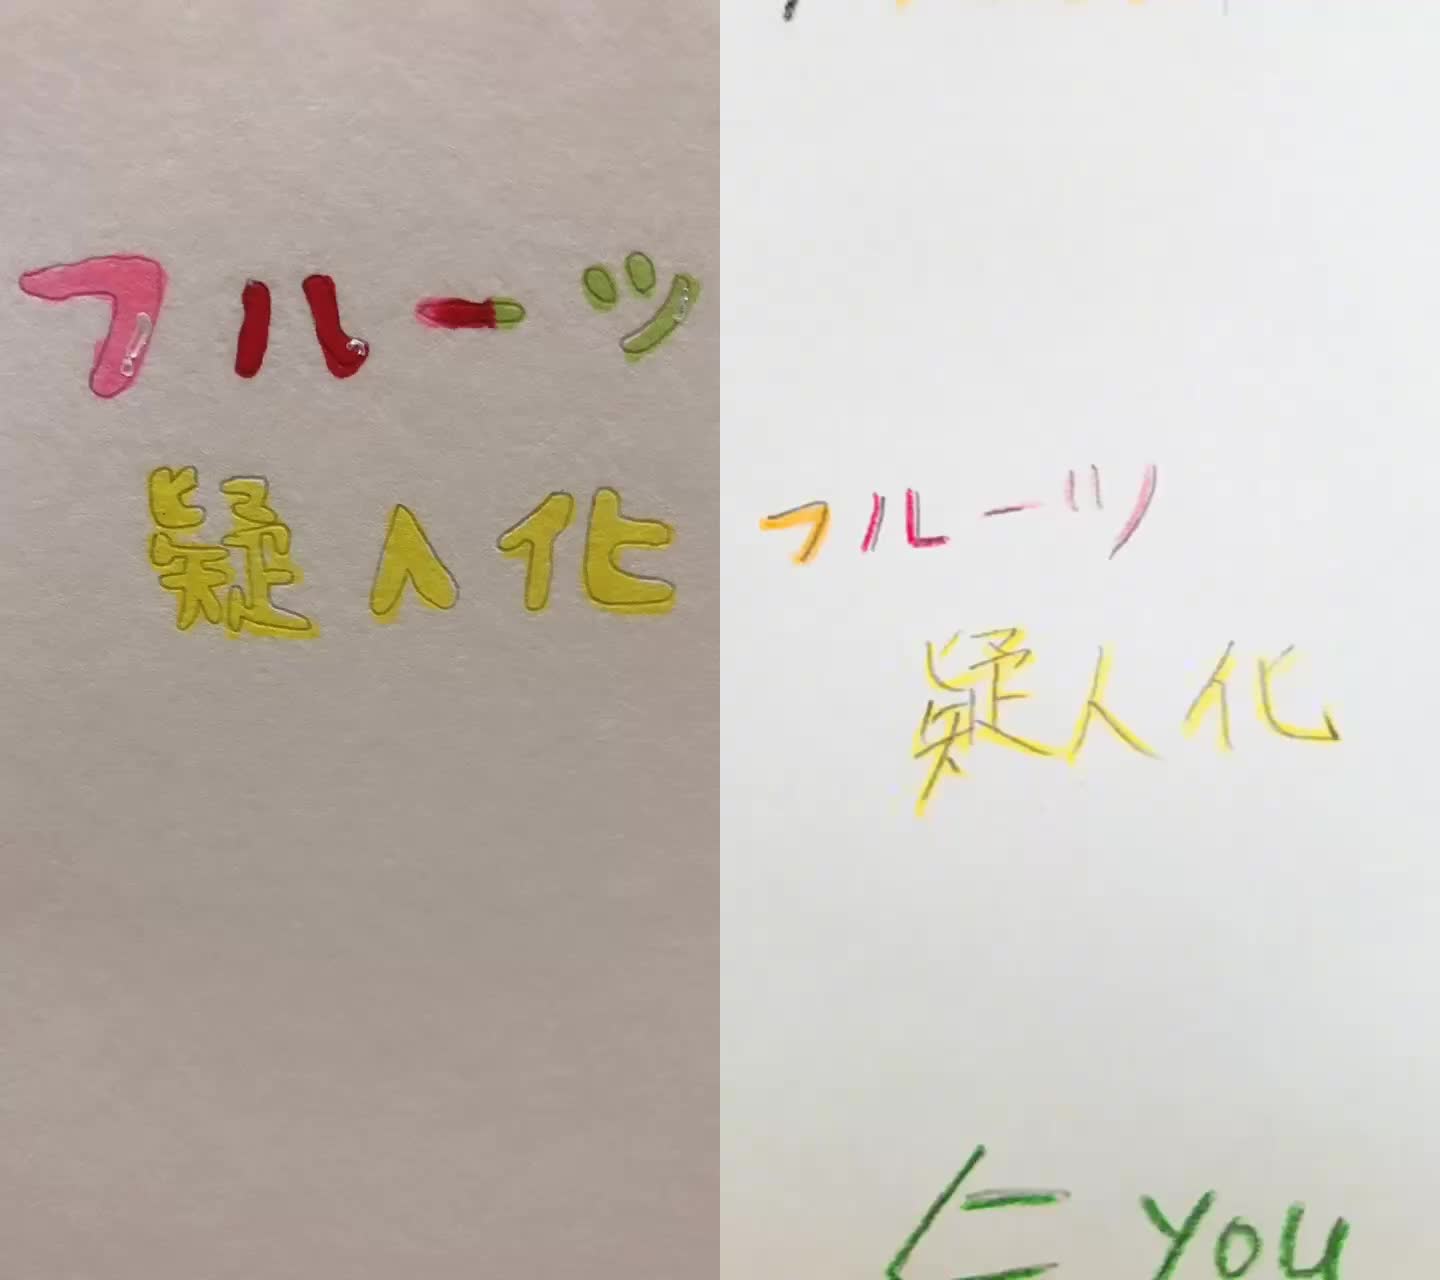 フルーツ
疑人化
フルーツ
疑人化
仁 YOU